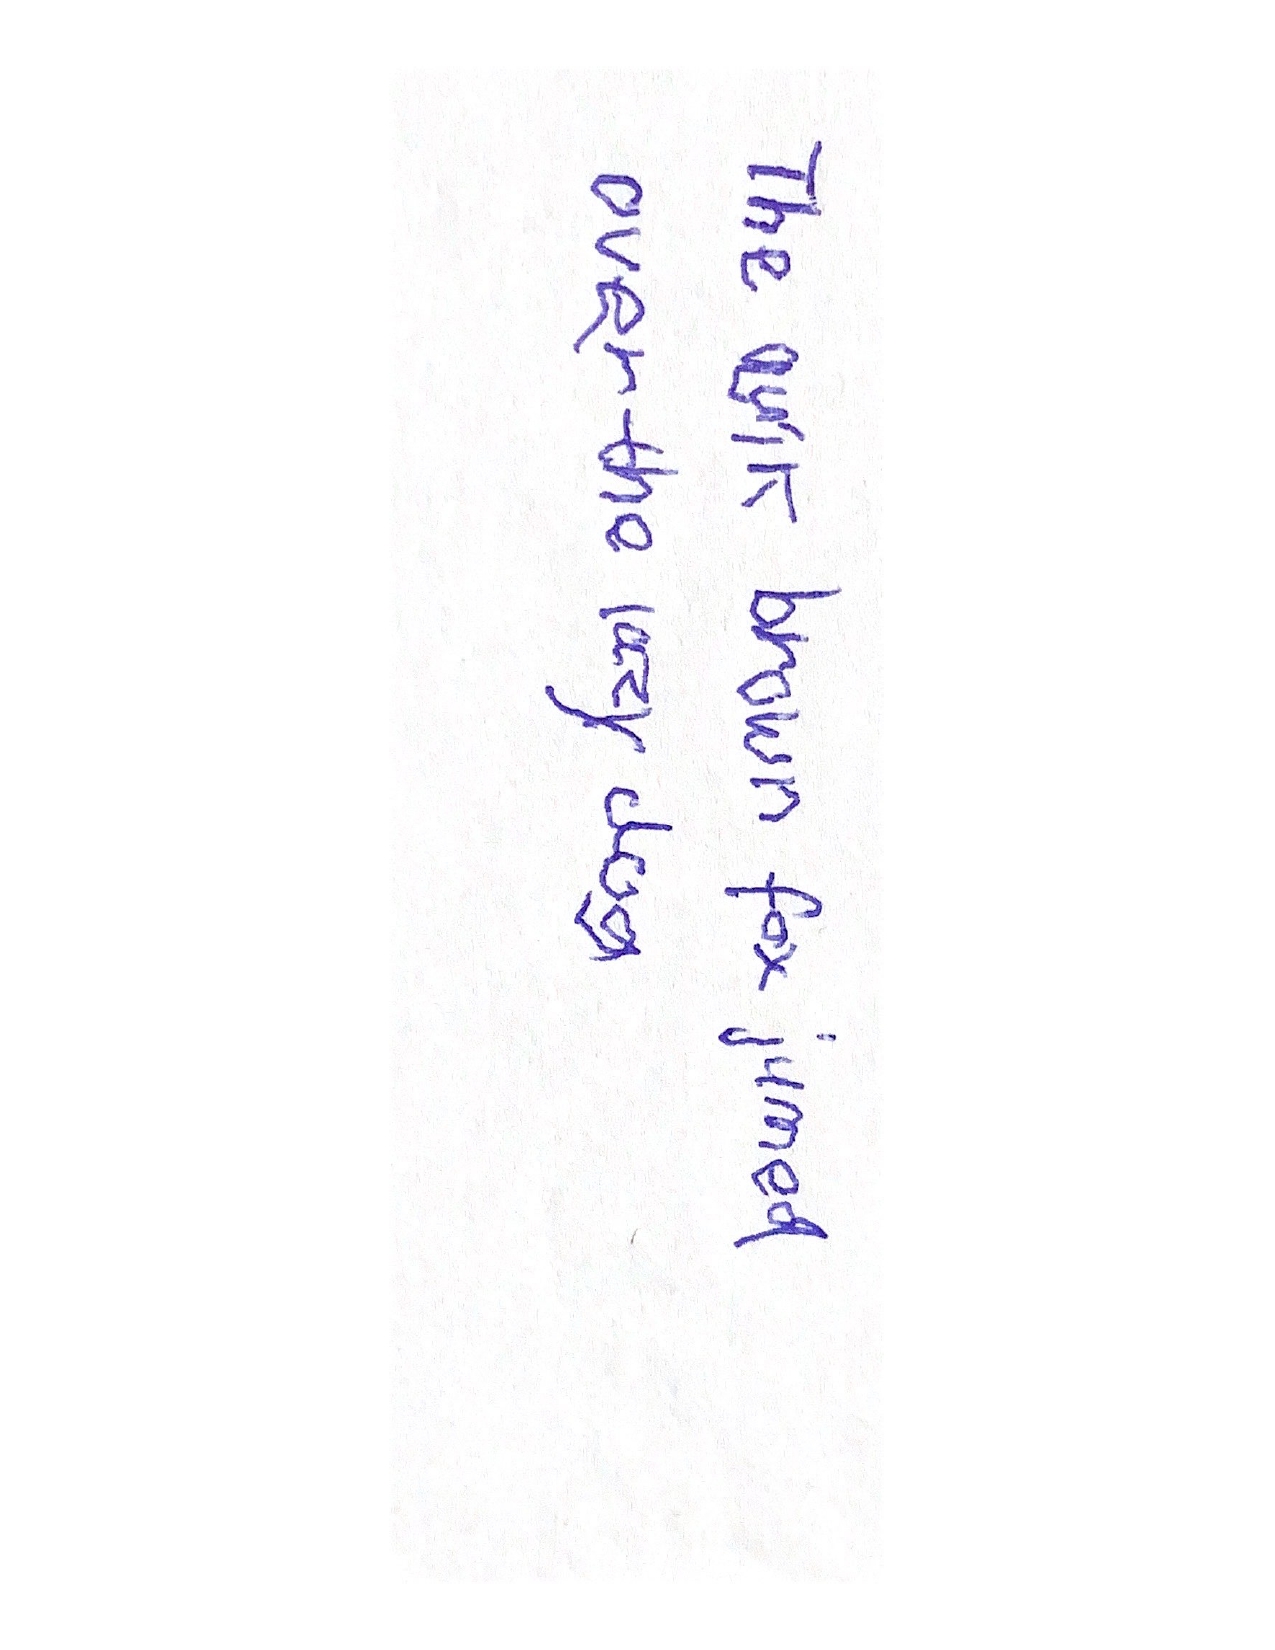 The quik brown fox jumed
over the lazy dog